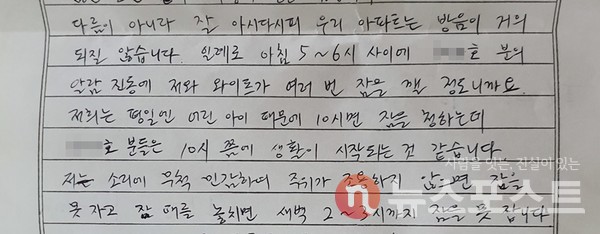 다름이 아니라 잘 아시다시피 우리 아파트는 방음이 거의
되질 않습니다. 일례로 아침 5~6시 사이에 호 분의
알람 진동에 저와 와이프가 여러 번 잠을 깰 정도니까요.
저희는 평일엔 어린 아이 때문에 10시면 잠을 청하는데
호 분들은 10시 쯤에 생활이 시작되는 것 같습니다
저는 소리에 무척 민감하며 주위가 조용하지 않으면 잠을
못 자고 잠 때를 놓치면 새벽 2~3시까지 잠을 못 잡니다.
사람을 잇는, 진실이 있는
n 뉴스포스트